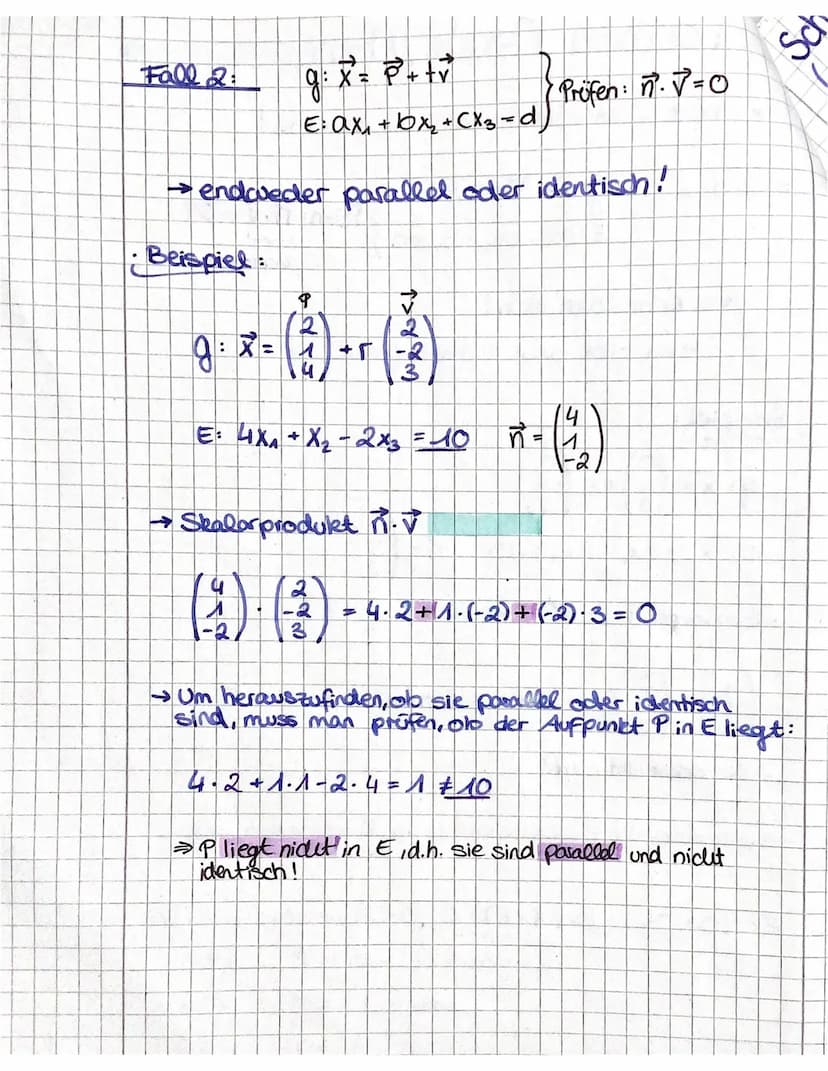 Sch
Fall 2: g: x⃗ = P⃗ + tv⃗
E: ax₁ + bx₂ + cx₃ = d } Prüfen: n⃗ · v⃗ = 0
→ endweder parallel oder identisch!
· Beispiel:
P v⃗
g: x⃗ = (2 1 4) + r (2 -2 3)
E: 4x₁ + x₂ - 2x₃ = 10 n⃗ = (4 1 -2)
→ Skalarprodukt n⃗ · v⃗
(4 1 -2) · (2 -2 3) = 4 · 2 + 1 · (-2) + (-2) · 3 = 0
→ Um herauszufinden, ob sie parallel oder identisch
sind, muss man prüfen, ob der Aufpunkt P in E liegt:
4 · 2 + 1 · 1 - 2 · 4 = 1 ≠ 10
⇒ P liegt nicht in E, d.h. sie sind parallel und nicht
identisch!